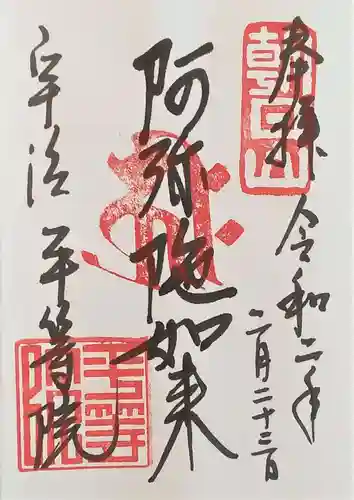 奉拝
令和二年
二月二十三日
朝日山
阿弥陀如来
宇治 平等院
平等院